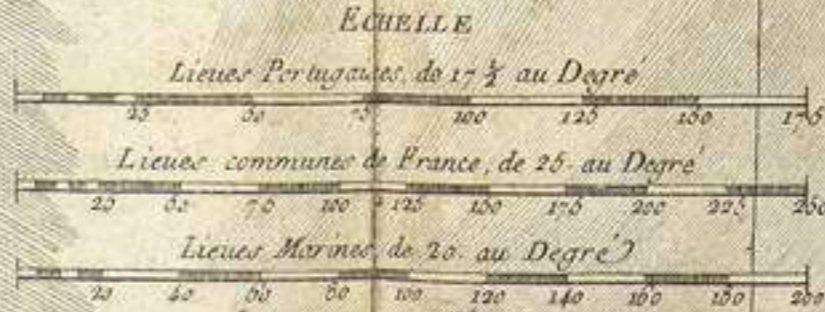 ECHELLE
Lieues Portugaises, de 17 ½ au Degré
25 50 75 100 125 150 175
Lieues communes de France, de 25 au Degré
25 50 75 100 125 150 175 200 225 250
Lieues Marines, de 20 au Degré
20 40 60 80 100 120 140 160 180 200